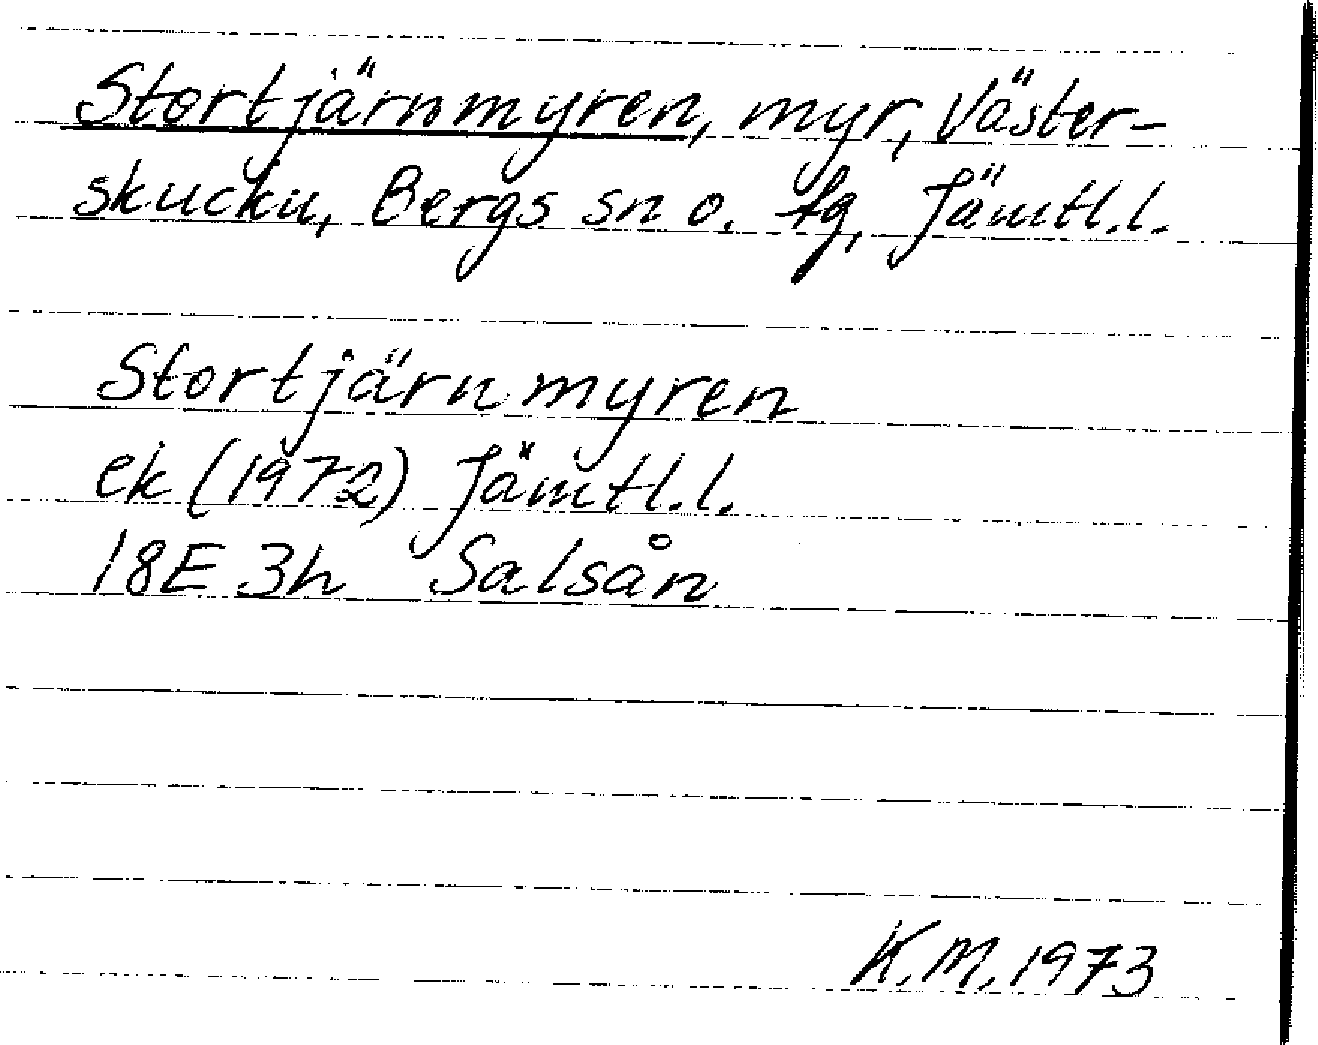 Stortjärnmyren, myr, Väster-
skucku, Bergs sn o. tg, Jämtl.l.
Stortjärnmyren
ek (1972) Jämtl.l.
18E 3h Salsån
K.M. 1973